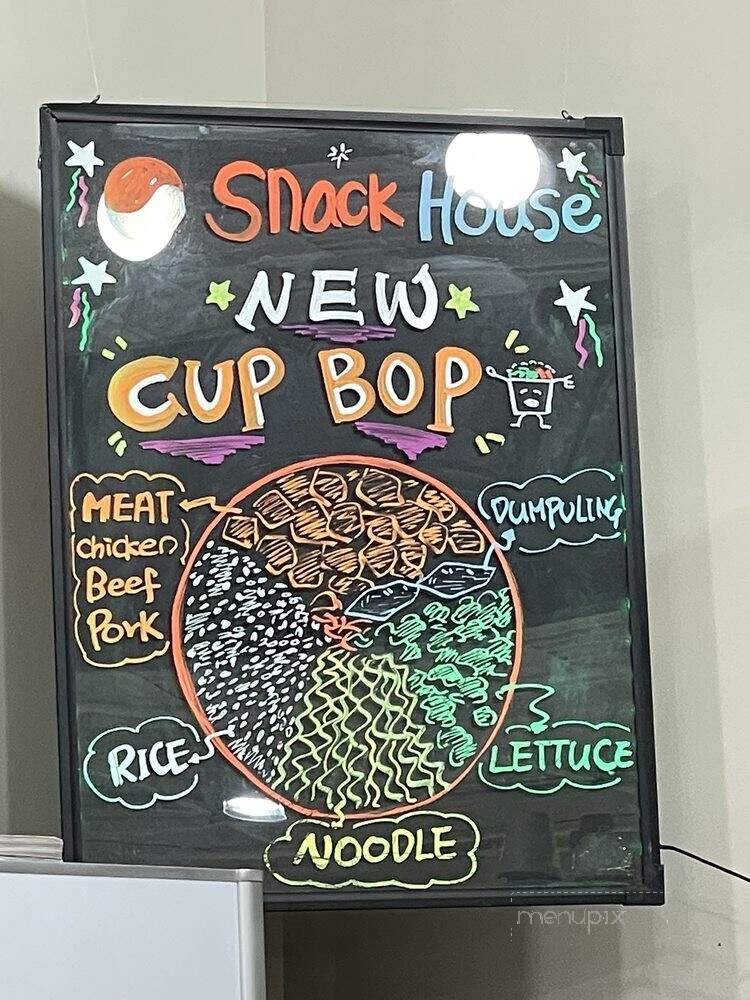 Snack House
NEW
CUP BOP
MEAT
chicken
Beef
Pork
DUMPULING
RICE
LETTUCE
NOODLE
menupix